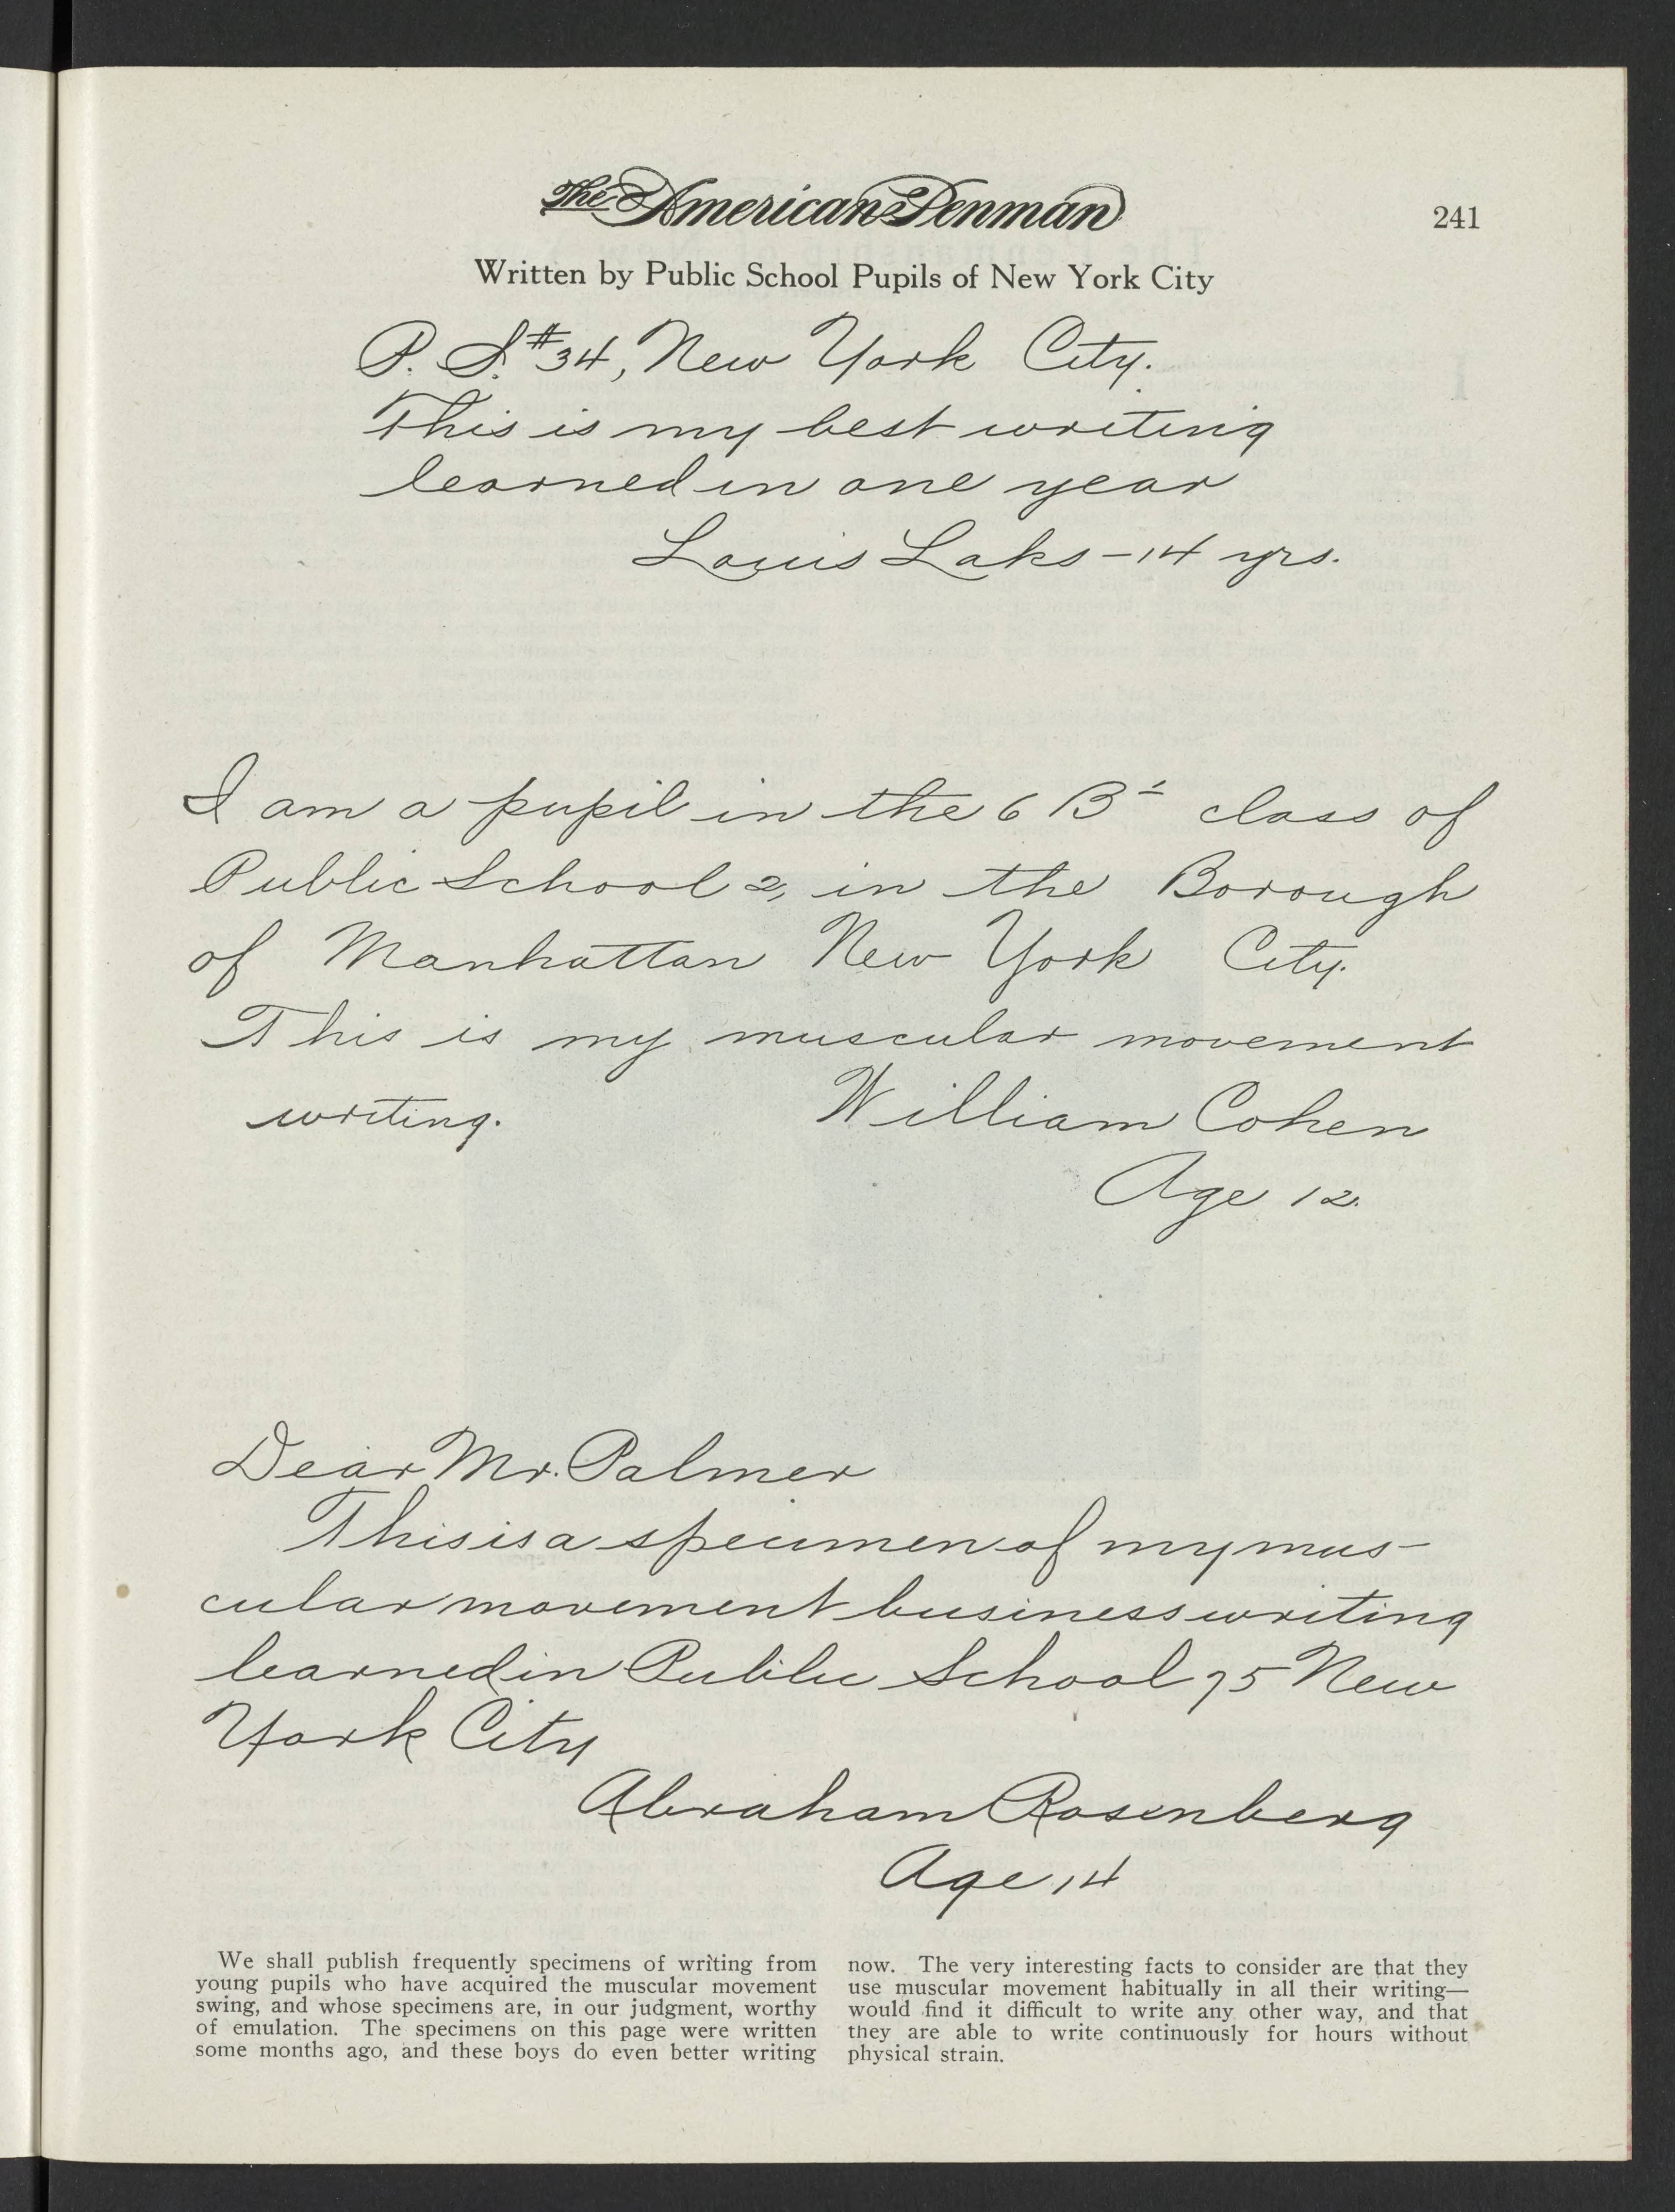 The American Penman
241
Written by Public School Pupils of New York City
P. S. #34, New York City.
This is my best writing
learned in one year
Louis Laks - 14 yrs.
I am a pupil in the 6 B¹ class of
Public School 2, in the Borough
of Manhattan New York City.
This is my muscular movement
writing. William Cohen
Age 12.
Dear Mr. Palmer
This is a specimen of my mus-
cular movement business writing
learned in Public School 75 New
York City
Abraham Rosenberg
Age 14
We shall publish frequently specimens of writing from
young pupils who have acquired the muscular movement
swing, and whose specimens are, in our judgment, worthy
of emulation. The specimens on this page were written
some months ago, and these boys do even better writing
now. The very interesting facts to consider are that they
use muscular movement habitually in all their writing—
would find it difficult to write any other way, and that
they are able to write continuously for hours without
physical strain.